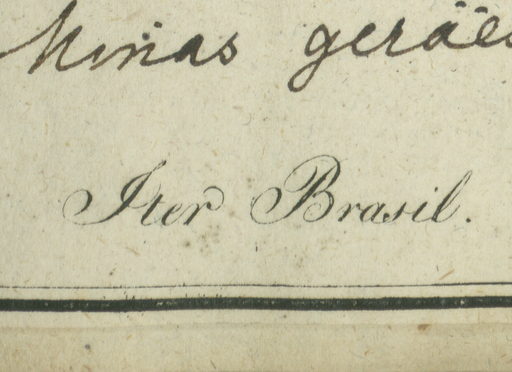 Minas geräes
Iter Brasil.